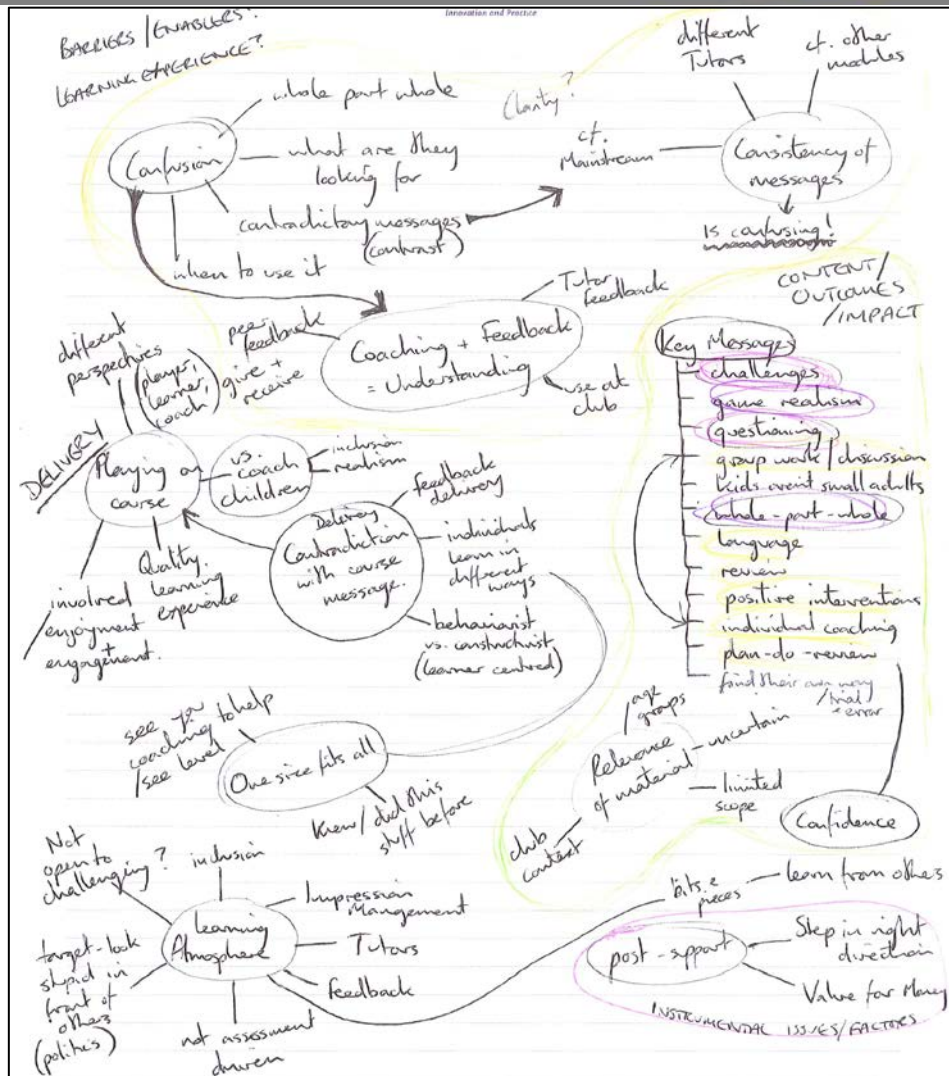 Innovation and Practice
BARRIERS / ENABLERS?
LEARNING EXPERIENCE?
Confusion
whole part whole
what are they
looking for
contradictory messages
(contrast)
when to use it
Clarity?
different
Tutors
cf. other
modules
cf.
Mainstream
Consistency of
messages
Is confusing!
Coaching + Feedback
= Understanding
Tutor
feedback
peer
feedback
give +
receive
use at
club
CONTENT/
OUTCOMES
/IMPACT
Key Messages
challenges
game realism
questioning
group work / discussion
kids aren't small adults
whole-part-whole
language
review
positive interventions
individual coaching
plan-do-review
find their own way
/trial
+ error
Confidence
DELIVERY
different
perspectives
(player,
learner,
coach)
Playing on
course
vs.
coach
children
inclusion
realism
involved
enjoyment
+
engagement.
Quality
learning
experience
Delivery
Contradiction
with course
message.
feedback
delivery
individuals
learn in
different
ways
behaviourist
vs. constructivist
(learner centred)
One size fits all
see you
coaching to help
/see level
Knew / did this
stuff before
Relevance
of material
age
groups
uncertain
limited
scope
club
context
Learning
Atmosphere
Not
open to
challenging?
inclusion
Impression
Management
Tutors
feedback
not assessment
driven
target-look
stupid in
front of
others
(politics)
bits +
pieces
learn from others
post-support
Step in right
direction
Value for Money
INSTRUMENTAL ISSUES/FACTORS